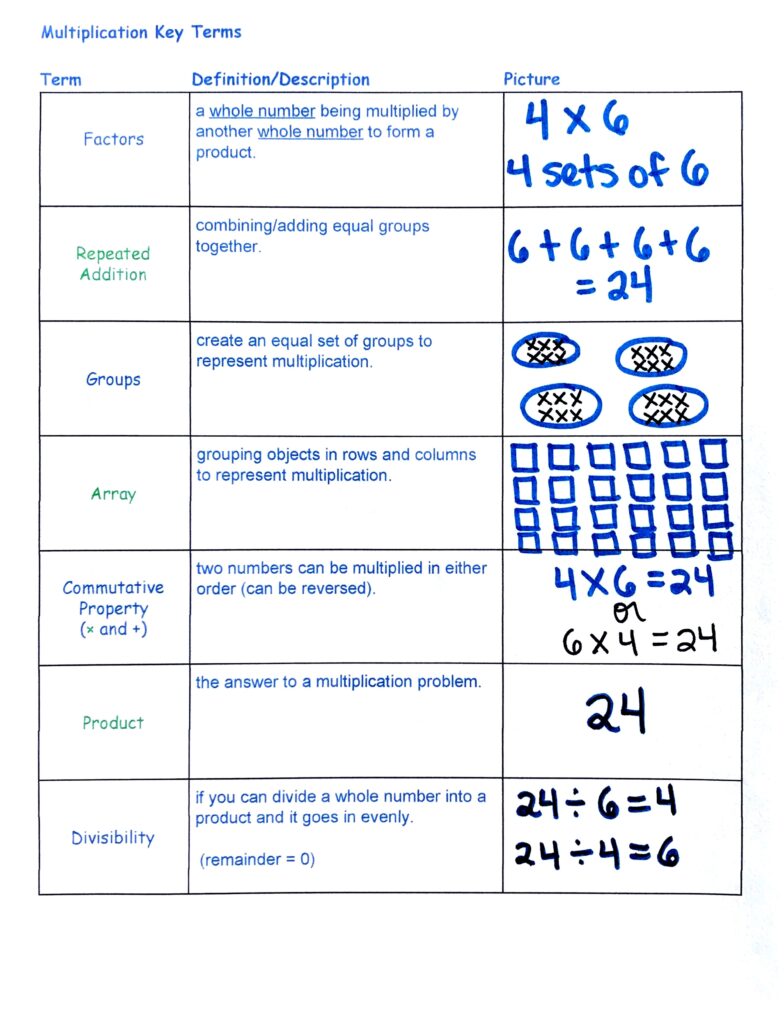 Multiplication Key Terms
Term Definition/Description Picture
Factors
a whole number being multiplied by
another whole number to form a
product.
4 x 6
4 sets of 6
Repeated
Addition
combining/adding equal groups
together.
6 + 6 + 6 + 6
= 24
Groups
create an equal set of groups to
represent multiplication.
xxx
xxx
xxx
xxx
xxx
xxx
xxx
xxx
Array
grouping objects in rows and columns
to represent multiplication.
Commutative
Property
(× and +)
two numbers can be multiplied in either
order (can be reversed).
4 x 6 = 24
or
6 x 4 = 24
Product
the answer to a multiplication problem.
24
Divisibility
if you can divide a whole number into a
product and it goes in evenly.
(remainder = 0)
24 ÷ 6 = 4
24 ÷ 4 = 6